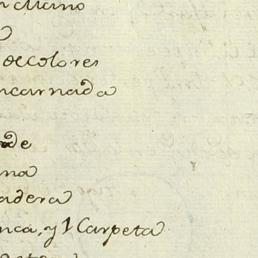 Mano
de colores
ncarnada
de
na
adera
nca, y 1 Carpeta